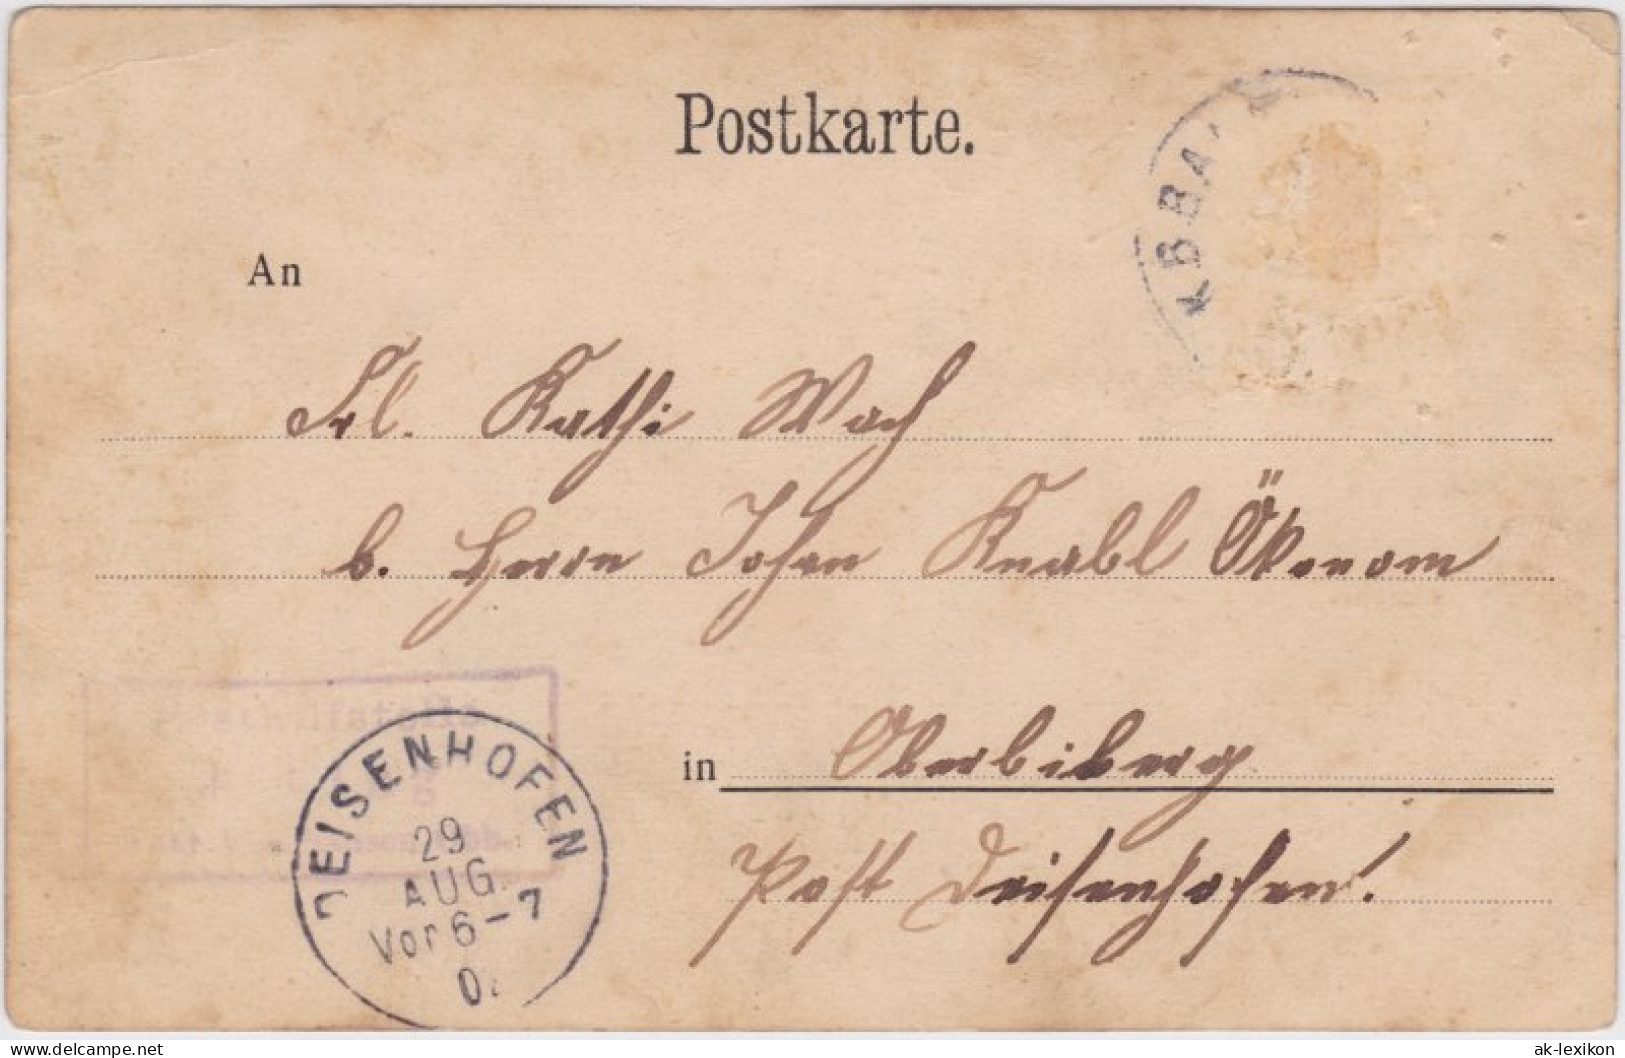 Postkarte.
An
Frl. Kathi Wach
b. Herrn Johan Knabl Ökonom
in Oberbiberg
Post Deisenhofen!
DEISENHOFEN
29
AUG.
Vor 6-7
delcampe.net
ak-lexikon